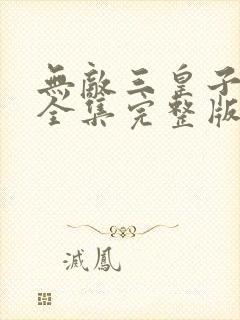 無敵三皇子
全集完整版
滅鳳